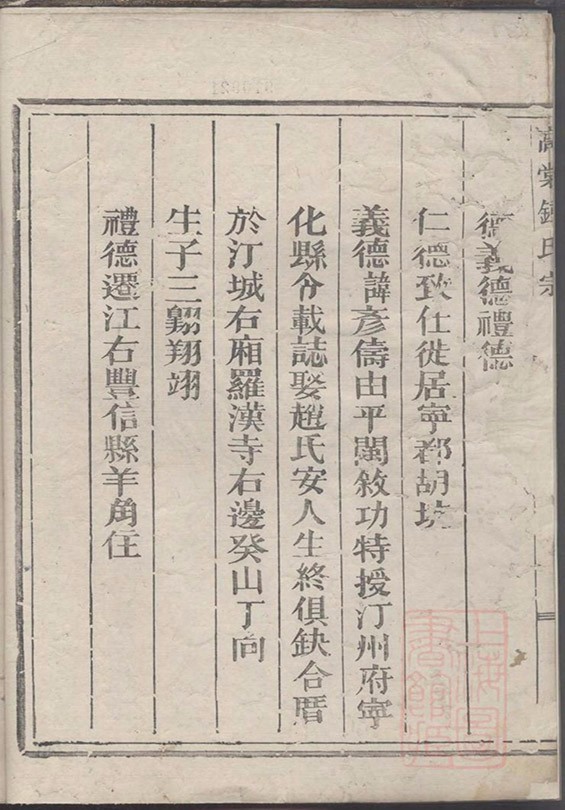 高棠鍾氏宗
德義德禮德
仁德致仕徙居寧都胡坑
義德諱彥儔由平閩敘功特授汀州府寧
化縣令載誌娶趙氏安人生終俱缺合厝
於汀城右廂羅漢寺右邊癸山丁向
生子三翱翔翊
禮德遷江右豐信縣羊角住
上海圖書館藏